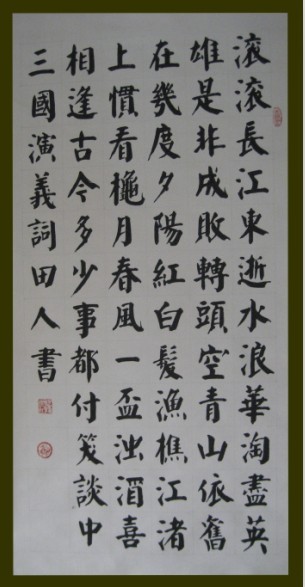 滚滚長江東逝水浪華淘盡英
雄是非成敗轉頭空青山依舊
在幾度夕陽紅白髮漁樵江渚
上慣看穐月春風一盃浊酒喜
相逢古今多少事都付笑談中
三國演義詞田人書